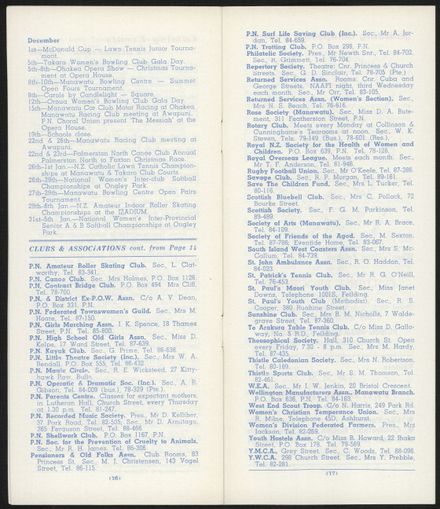 December
1st—McDonald Cup — Lawn Tennis Junior Tournament.
5th—Takaro Women's Bowling Club Gala Day.
5th-8th—Ohakea Opera Show — Christmas Tournament at Opera House.
8th-10th—Manawatu Bowling Centre — Summer Open Fours Tournament.
8th—Carols by Candlelight — Square.
12th—Oraua Women's Bowling Club Gala Day.
14th—Manawatu Car Club Motor Racing at
Manawatu Racing Club meeting at Awapuni.
P.N. Choral Union present The Messiah" at the
Opera House.
19th—Schools close.
22nd & 26th—Manawatu Racing Club meeting at
Awapuni.
22nd & 26th—Palmerston North Canoe Club Annual
Palmerston North to Foxton Christmas Race.
26th-1st Jan.—N.Z. Catholic Lawn Tennis Championships at Manawatu & Takaro Club Courts.
26th-29th—National Women's Inter-club Softball
Championships at Ongley Park.
27th-29th—Manawatu Bowling Centre Open Pairs
Tournament.
29th-6th Jan.—N.Z. Amateur Indoor Roller Skating
Championships at the IZADIUM.
31st-5th Jan.—National Women's Inter-Provincial
Senior A & B Softball Championships at Ongley
Park.
CLUBS & ASSOCIATIONS cont. from Page 11
P.N. Amateur Roller Skating Club. Sec., L. Clatworthy, Tel. 83-341.
P.N. Canoe Club. Sec. Mrs Holmes, P.O. Box 1126.
P.N. Contract Bridge Club. P.O. Box 454. Mrs Cliff,
Tel. 78-700.
P.N. & District Ex-P.O.W. Assn. C/o A. Y. Dean,
P.O. Box 221, P.N.
P.N. Federated Townswomen's Guild. Sec., Mrs M.
Horne, Tel. 87-150.
P.N. Girls Marching Assn. I. K. Spence, 18 Thames
Street, P.N. Tel. 85-600.
P.N. High School Old Girls Assn. Sec., Miss D.
Kelso, 17 Ward Street, Tel. 87-639.
P.N. Kayak Club. Sec., G. Prime, Tel. 86-838.
P.N. Little Theatre Society (Inc.). Sec., Mrs W. A.
Rendall, P.O. Box 555, Tel. 86-432.
P.N. Music Circle. Sec., R. E. Wicksteed, 27 Kittyhawk Row, Bulls.
P.N. Operatic & Dramatic Soc. (Inc.). Sec., A. R.
Gibson, Tel. 84-009 (bus.), 78-329 (Pte.).
P.N. Parents Centre. Classes for expectant mothers,
in Lutheran Hall, Church Street, every Thursday
at 1.30 p.m. Tel. 81-247.
P.N. Recorded Music Society. Pres., Mr D. Kelliher,
37 Park Road, Tel. 82-505; Sec., Mr D. Armitage,
365 Ferguson Street, Tel. 88-466.
P.N. Shellwork Club. P.O. Box 1167, P.N.
P.N. Soc. for the Prevention of Cruelty to Animals.
Sec., Mr R. H. Jones, Tel. 86-308.
Pensioners & Old Folks Assn. Club Rooms, 83
Princess St. Sec., M. J. Christensen, 143 Vogel
Street, Tel. 86-115.
(16)
P.N. Surf Life Saving Club (Inc.). Sec., Mr A. Jordan, Tel. 84-659.
P.N. Trotting Club. P.O. Box 298, P.N.
Philatelic Society. Pres., Mr Newth Snr., Tel. 84-702.
Sec., R. Grimmett, Tel. 76-704.
Repertory Society. Theatre: Cnr. Princess & Church
Streets. Sec., G. D. Sinclair, Tel. 78-705 (Pte.).
Returned Services Assn. Rooms: Cnr. Cuba and
George Streets. NAAFI night, third Wednesday
each month. Sec., M. Carr, Tel. 83-105.
Returned Services Assn. (Women's Section). Sec.,
Mrs N. E. Beech, Tel. 76-616.
Rose Society (Manawatu). Sec., Miss D. A. Butement, 311 Featherston Street, P.N.
Rotary Club. Meets every Monday at Collinson &
Cunninghame's Tearooms at noon. Sec., W. K.
Steven, Tels. 79-149 (Bus.), 78-601 (Res.).
Royal N.Z. Society for the Health of Women and
Children. P.O. Box 639, P.N. Tel. 78-108.
Royal Overseas League. Meets each month. Sec.,
Mr T. F. Anderson, Tel. 81-948.
Rugby Football Union. Sec., Mr O'Keefe, Tel. 87-286.
Savage Club. Sec., R. F. Morgan, Tel. 89-161.
Save The Children Fund. Sec., Mrs L. Tucker, Tel.
80-116.
Scottish Bluebell Club. Sec., Mrs C. Pollock, 72
Bourke Street.
Scottish Society. Sec., F. G. M. Parkinson, Tel.
89-489.
Society of Arts (Manawatu). Sec., Mr R. A. Brace,
Tel. 84-109.
Society of Friends of the Aged. Sec., M. Sexton,
Tel. 87-786, Eventide Home, Tel. 83-067.
South Island West Coasters Assn. Sec., Mrs S. McCallum, Tel. 84-739.
St. John Ambulance Assn. Sec., R. O. Haddon, Tel.
84-023.
St. Patrick's Tennis Club. Sec., Mr R. G. O'Neill,
Tel. 76-453.
St. Paul's Maori Youth Club. Sec., Miss Janet
Downs, Telephone 1001S, Feilding.
St. Paul's Youth Club (Methodist). Sec., R. S.
Cooper, 380 Ruahine Street.
Sunshine Club. Sec., Mrs B. M. Nicholls, 7 Waldegrave Street, Tel. 87-360.
Te Arakura Table Tennis Club. C/o Miss D. Galloway, No. 5 R.D., Feilding.
Theosophical Society. Hall, 310 Church St. Open
every Friday, 7.30 - 8 p.m. Sec., Mrs M. Hardy,
Tel. 87-435.
Thistle Caledonian Society. Sec., Mrs N. Robertson,
Tel. 80-169.
Thistle Sports Club. Sec., Mr S. M. Thomson, Tel.
82-461.
W.E.A. Sec., Mr I. W. Jenkin, 20 Bristol Crescent.
Wellington Manufacturers Assn., Manawatu Branch.
P.O. Box 636, P.N. Tel. 84-163.
West End Scout Troop. C/o N. Harris, 249 Park Rd.
Women's Christian Temperance Union. Sec., Mrs
R. Milne, Telephone 45D, Ashhurst.
Women's Division Federated Farmers. Pres., Mrs
Jackson, Tel. 82-269.
Youth Hostels Assn. C/o Miss B. Howard, 22 Ihaka
Street, P.O. Box 178, Tel. 79-569.
Y.M.C.A. Grey Street. Sec., C. Woods, Tel. 86-096.
Y.W.C.A. 298 Church Street. Sec., Mrs Y. Prebble,
Tel. 82-281.
(17)